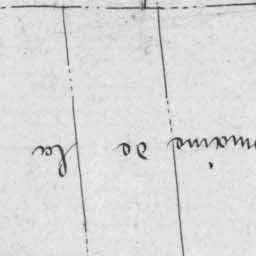 omaine de la